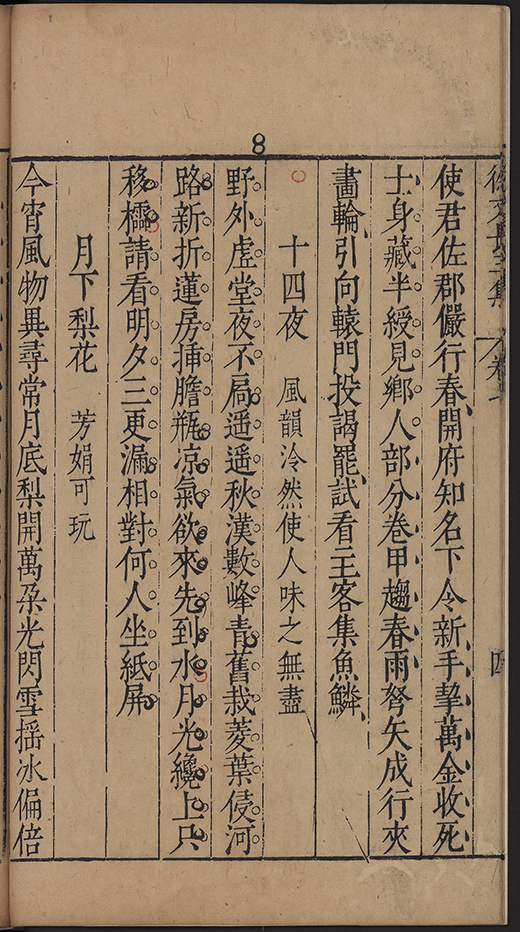 8
徐文長全集 卷 四
使君佐郡儼行春開府知名下令新手挈萬金收死
士身藏半綬見鄉人部分卷甲趨春雨弩矢成行夾
畵輪引向轅門投謁罷試看主客集魚鱗
十四夜 風韻泠然使人味之無盡
野外虛堂夜不扃遥遥秋漢數峰青舊栽菱葉侵河
路新折蓮房揷膽瓶凉氣欲來先到水月光纔上只
移櫺請看明夕三更漏相對何人坐紙屏
月下梨花 芳娟可玩
今宵風物異尋常月底梨開萬朶光閃雪揺冰偏倍